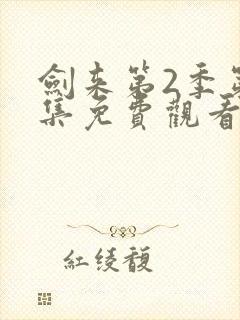 劍来第2季第
集免費觀看
紅绫馥